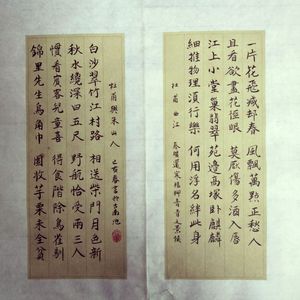 一片花飛減却春 風飄萬點正愁人
且看欲盡花經眼 莫厭傷多酒入唇
江上小堂巢翡翠 苑邊高塚臥麒麟
細推物理須行樂 何用浮名絆此身
杜甫曲江
錦里先生烏角巾 園收芋栗未全貧
慣看賓客兒童喜 得食階除鳥雀馴
秋水纔深四五尺 野航恰受兩三人
白沙翠竹江村路 相送柴門月色新
杜甫與朱山人